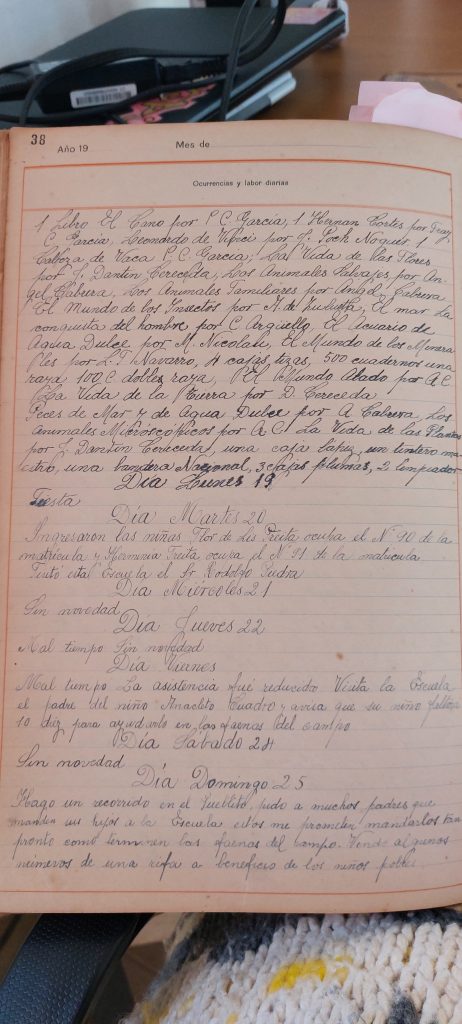 38
Año 19
Mes de
Ocurrencias y labor diarias
1 Libro El Cano por P C. Garcia, 1 Hernan Cortes por
Garcia, Leonardo de Vinci por J. Poch Noguer, 1
Cabeza de Vaca P. C. Garcia, La Vida de las Flores
por J. Dantin Cereceda, Los Animales Salvajes por An
gel Cabrera, Los Animales Familiares por Angel Cabrera
El Mundo de los Insectos por A. de Zulueta, El mar La
conquista del hombre por C Arguello, El Acuario de
Agua Dulce por M. Nicolau, El Mundo de los Minera
les por L. F. Navarro, 4 cajas tizas, 500 cuadernos una
raya 100 C. dobles raya, El Mundo Alado por A C.
La Vida de la Tierra por D. Cereceda
Peces de Mar y de Agua Dulce por A Cabrera, Los
Animales Microscopicos por A. C. La Vida de las Plantas
por J. Dantin Cereceda, una caja lapiz, un tintero
una bandera Nacional, 3 cajas plumas, 2 limpiador
Dia Lunes 19
Fiesta
Dia Martes 20
Ingresaron las niñas, Flor de Lis ocupa el N° 90 de la
matricula y Herminia ocupa el N° 91 de la matricula
esta Escuela el Sr. Rodolfo
Dia Miércoles 21
Sin novedad
Dia Jueves 22
Mal tiempo Sin novedad
Dia Viernes
Mal tiempo La asistencia fué reducida Visita la Escuela
el padre del niño Anacleto Cuadro y avisa que su niño faltará
10 diz para ayudarlo en las faenas del campo
Dia Sabaldo 24
Sin novedad
Dia Domingo 25
Hago un recorrido en el Pueblito, pido a muchos padres que
manden sus hijos a la Escuela, estos me prometen mandarlos tan
pronto como terminen las faenas del campo. Vendo algunos
números de una rifa a beneficio de los niños pobres